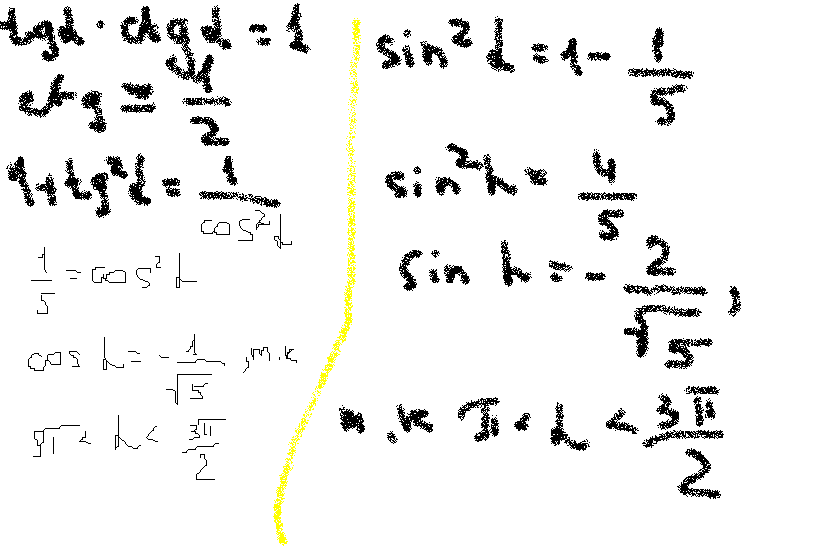 tgα · ctgα = 1
ctg = 1/2
1+tg²α = 1/cos²α
1/5 = cos²α
cos α = - 1/√5 , т.к
π < α < 3π/2
sin²α = 1 - 1/5
sin²α = 4/5
sin α = - 2/√5 ,
т.к π < α < 3π/2